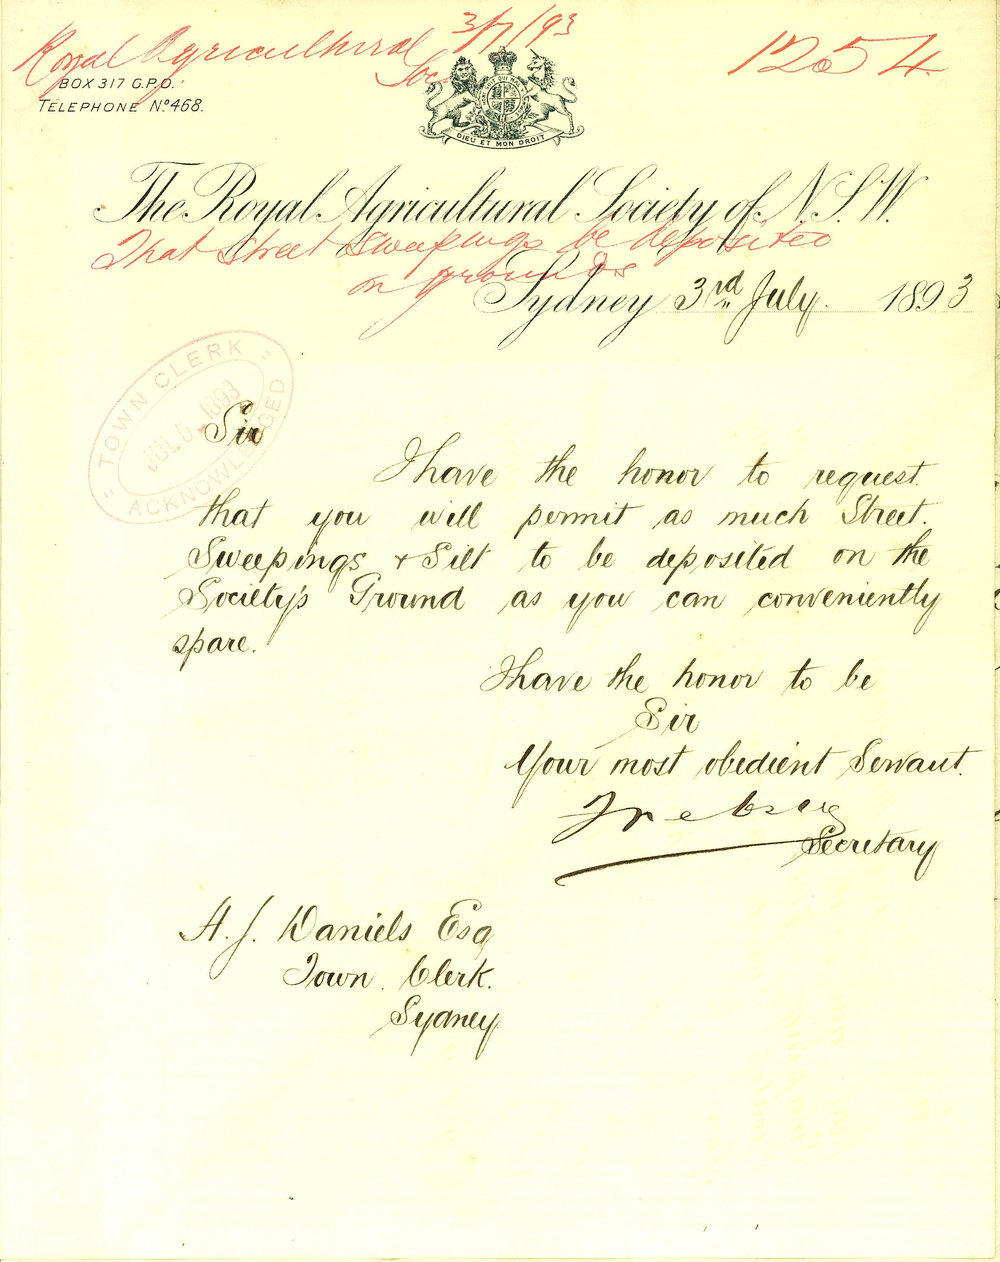 Royal Agricultural Soc 3/7/93
1254
BOX 317 G.P.O.
TELEPHONE Nº 468.
DIEU ET MON DROIT
The Royal Agricultural Society of N.S.W.
That Street Sweepings be deposited
on grounds
Sydney 3rd July. 1893
TOWN CLERK
JUL 5 1893
ACKNOWLEDGED
Sir
I have the honor to request
that you will permit as much Street
Sweepings & Silt to be deposited on the
Society's Ground as you can conveniently
spare.
I have the honor to be
Sir
Your most obedient Servant.
Secretary
A. J. Daniels Esq
Town Clerk.
Sydney